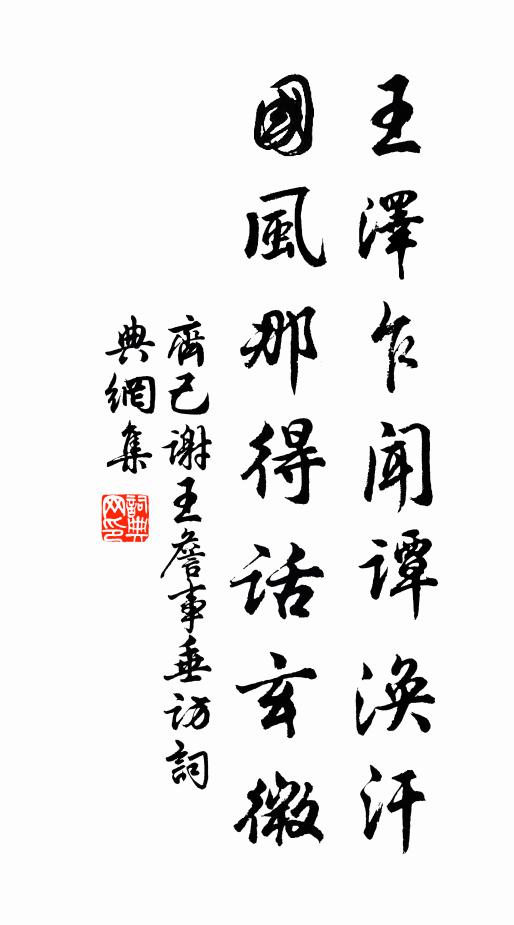 王澤乍聞譚渙汗
國風那得話玄微
齊己謝王詹事垂訪詞
典網集
詞典
网印